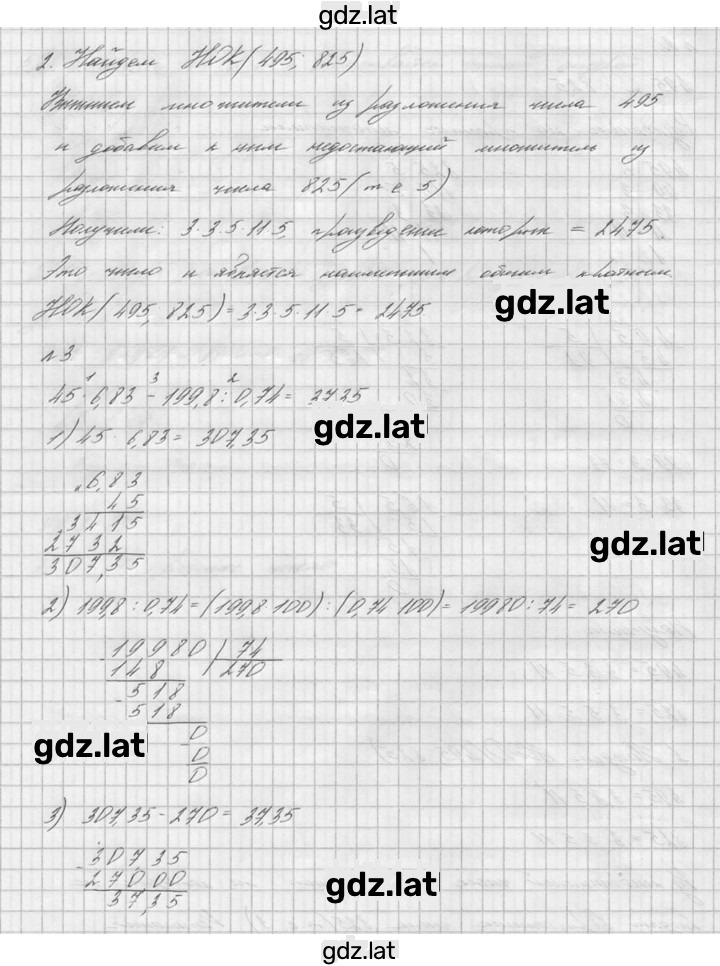 gdz.lat
2. Найдем НОК(495; 825)
множители из разложения числа 495
и добавим к ним недостающий множитель из
разложения числа 825 (т е 5)
Получили: 3·3·5·11·5, произведение которых = 2475.
Это число и является наименьшим общим кратным.
gdz.lat
НОК(495, 825) = 3·3·5·11·5 = 2475
№3
1 3 2
45·6,83 - 199,8:0,74 =
gdz.lat
1) 45·6,83 = 307,35
6,83
45
3415
gdz.lat
2732
307,35
2) 199,8:0,74 = (199,8·100):(0,74·100) = 19980:74 = 270
19980 74
148 270
518
518
gdz.lat
0
0
0
3) 307,35 - 270 = 37,35
30735
27000
gdz.lat
37,35
gdz.lat